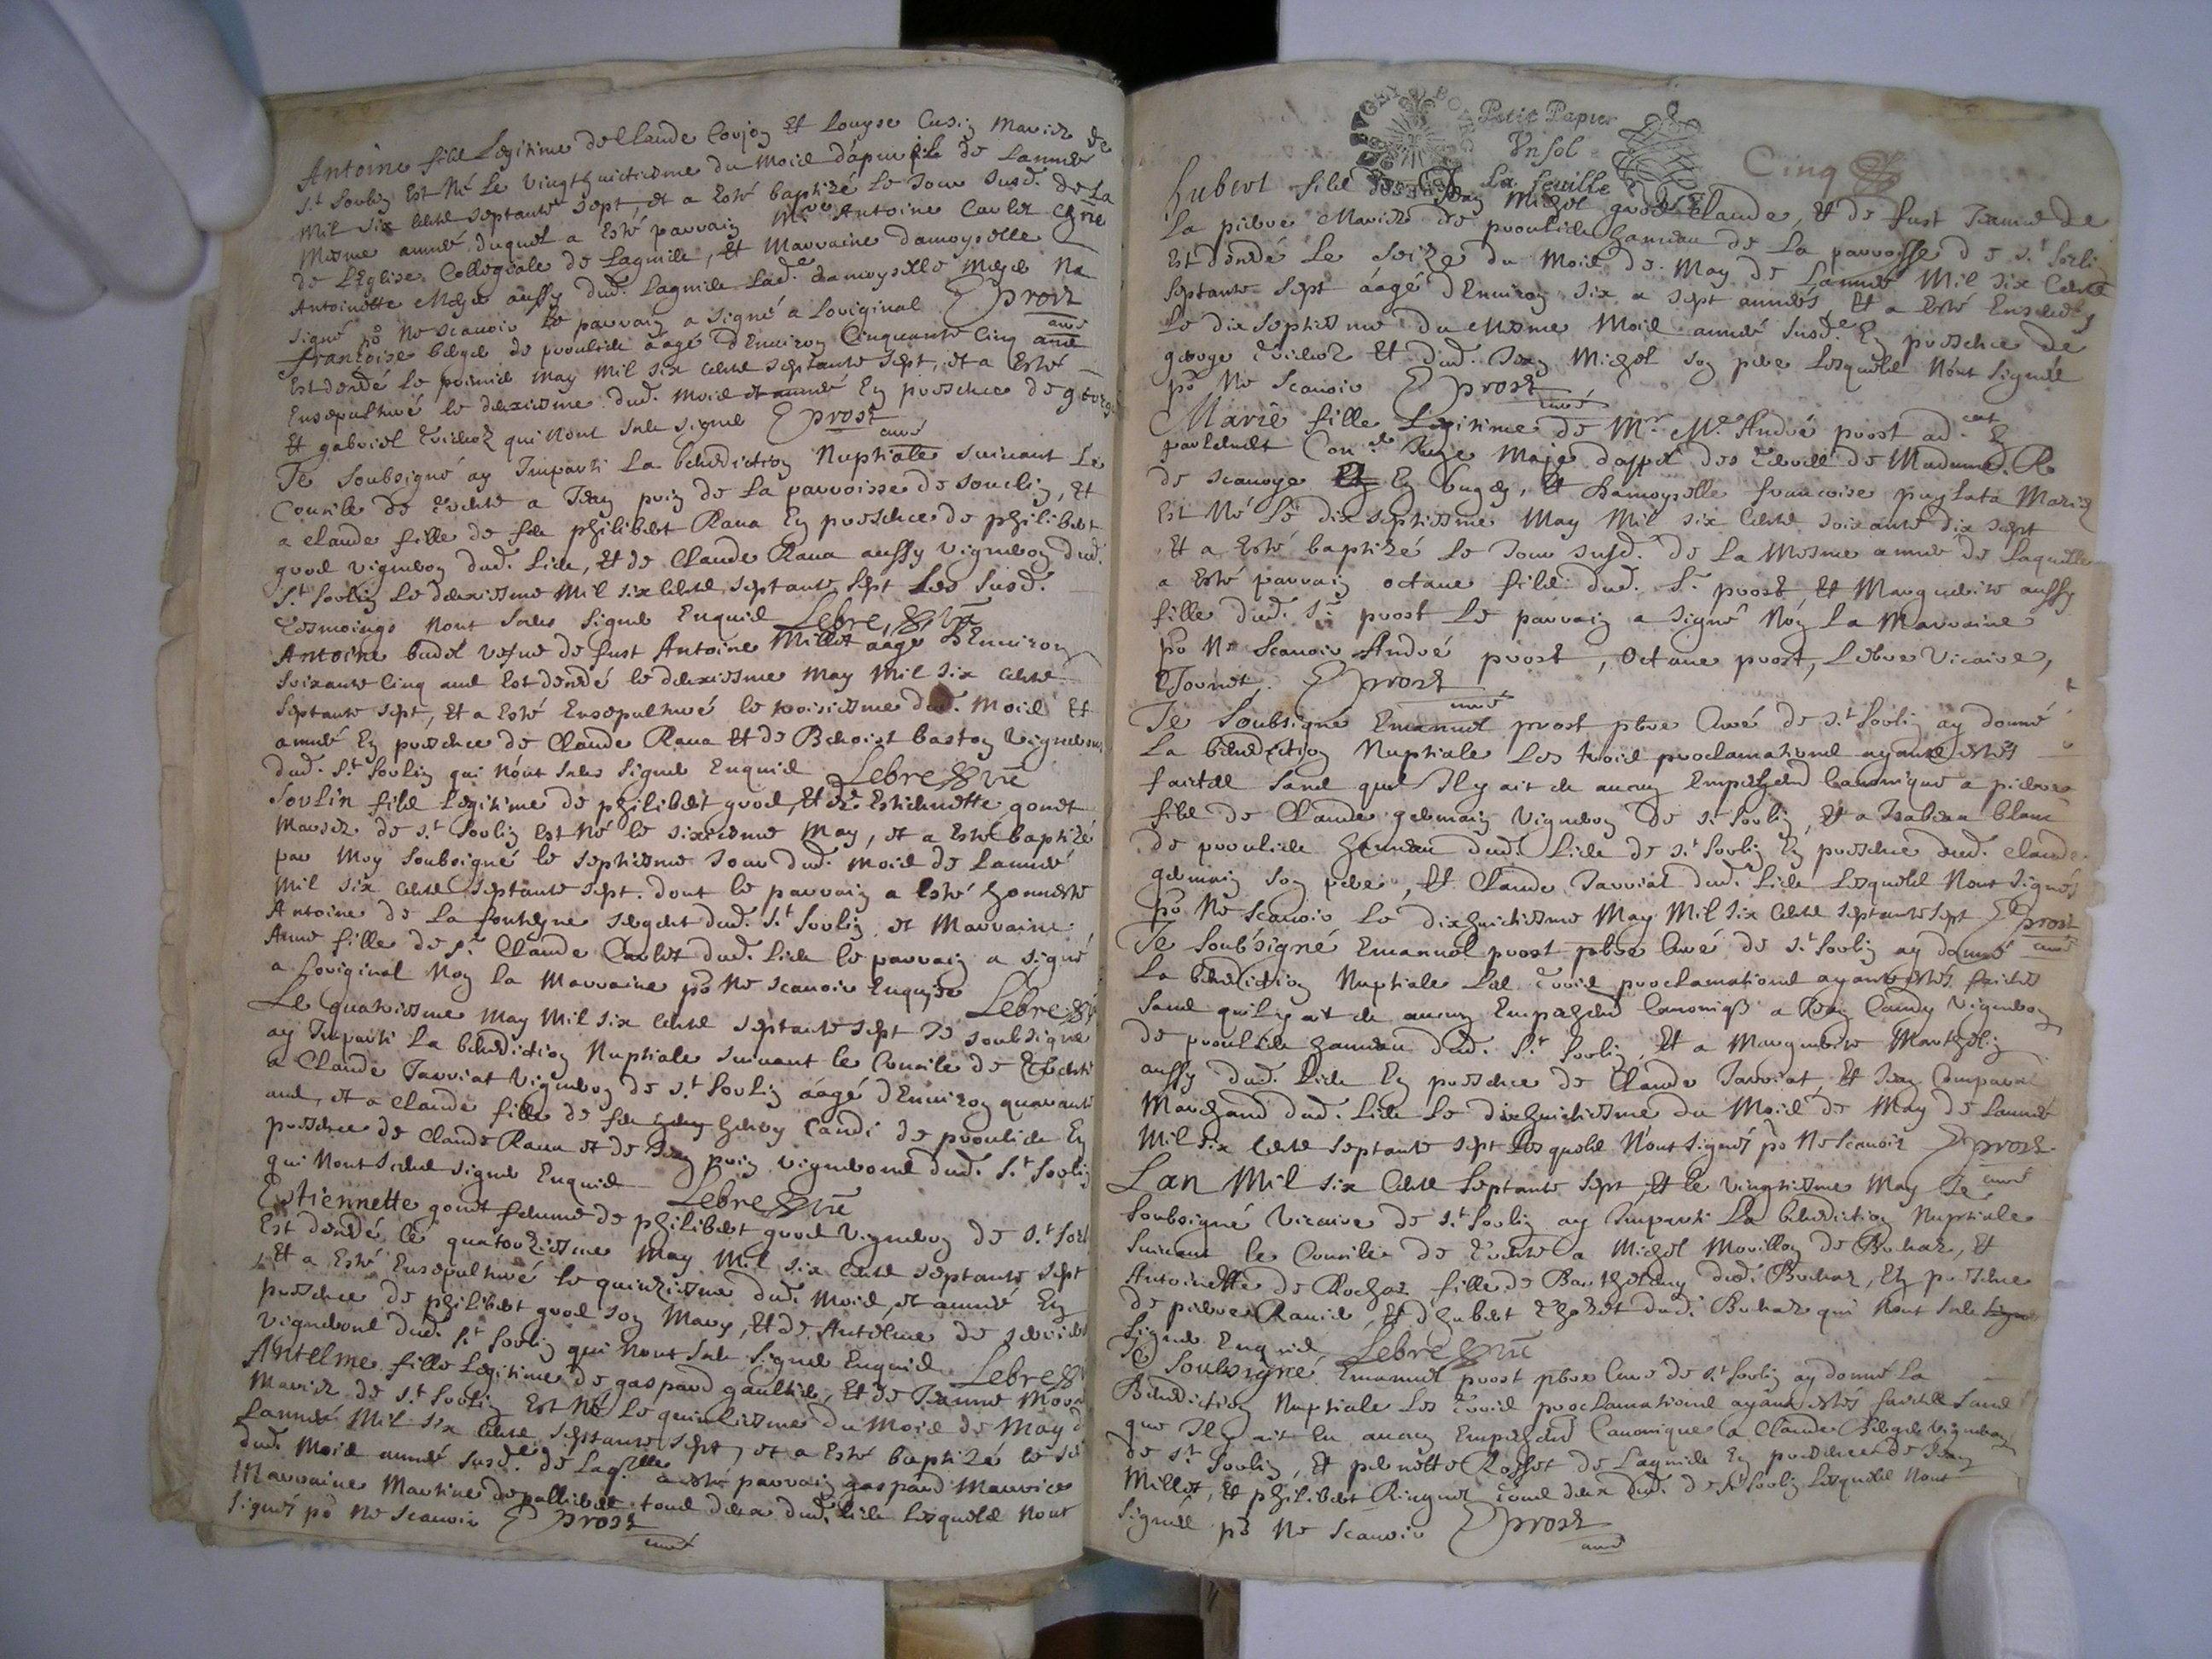 Antoine fils Legitime de Claude Coujon Et Louyse Cusin Mariez de
St Sorlin Est Né Le vingthuictiesme du Mois d'apvril de Lannée
Mil six cents septante sept, et a Esté baptizé Le Jour susd. de La
Mesme année duquel a Esté parrain Mre Antoine Carlet
de L'Eglise Collegiale de Lagnieu, Et Marraine damoyselle
Antoinette aussy dud. Lagnieu Lad. damoyselle Na
signé po Ne scauoir Le parrain a signé a Loriginal E prost curé
francoise de proulieu aage d'Enuiron Cinquante Cinq ans
Est decedé le premier May Mil six cents septante sept, et a Esté
Ensepulturé le deuxiesme dud. Mois et année En presence de george
Et gabriel qui N'ont sceu signer E prost curé
Je Soubsigné ay Imparti La benediction Nuptiale suiuant Le
Concile de Trente a Jean prin de La parroisse de souclin, Et
a claude fille de feu philibert Rana En presence de philibert
grod vigneron dud. Lieu, Et de Claude Rana aussy vigneron dud.
St Sorlin le deuxiesme Mil six cents septante sept Les susd.
Tesmoings N'ont sceu signer Enquis Lebre vic
Antoine budet vefue de fust Antoine Millet aagé d'Enuiron
soixante Cinq ans Est decedé le deuxiesme May Mil six cents
septante sept, Et a Esté Ensepulturé le troisiesme dud. Mois Et
année En presence de Claude Rana Et de Benoist baston vignerons
dud. St Sorlin qui N'ont sceu signer Enquis Lebre vic
Sorlin fils Legitime de philibert grod, Et de Estiennette gonet
Mariez de St Sorlin Est Né le sixiesme May, et a Esté baptizé
par Moy soubsigné le septiesme Jour dud. Mois de Lannée
Mil six cents septante sept. dont le parrain a Esté honneste
Antoine de La fontayne sergent dud. St Sorlin et Marraine
Anne fille de Sr Claude Carlet dud. Lieu le parrain a signé
a Loriginal Non La Marraine po Ne scauoir Enquise Lebre
Le quatriesme May Mil six cents septante sept Je soubsigné
ay Imparti La benediction Nuptiale suiuant le Concile de Trente
a Claude Tarriat vigneron de St Sorlin aagé d'Enuiron quarante
ans, et a Claude fille de feu henry Candi de proulieu En
presence de Claude Rana et de Jean prin vignerons dud. St Sorlin
qui N'ont sceu signer Enquis Lebre vic
Estiennette gonet femme de philibert grod vigneron de St Sorl
Est decedé le quatorziesme May Mil six cents septante sept
Et a Esté Ensepulturé le quinziesme dud. Mois, et année En
presence de philibert grod son Mary, Et de Antelme de
vignerons dud. St Sorlin qui N'ont sceu signer Enquis Lebre
Antelme fille Legitime de gaspard gaultier, Et de Jeanne
Mariez de St Sorlin Est Né Le quinziesme du Mois de May d
Lannée Mil six cents septante sept, et a Esté baptizé le
dud. Mois année susd. de Laqlle a esté parrain gaspard Maurice
Marraine Martine tous deux dud. Lieu Lesquels N'ont
signés po Ne scauoir E prost curé
Petit Papier
Un sol
La feuille
Cinq
hubert fils de Jean Michel grod Claude, Et de fust Jeanne de
La pierre Mariez de proulieu hameau de La parroisse de St Sorli
Est decedé Le seize du Mois de May de Lannée Mil six Cents
Septante sept aagé d'Enuiron six a sept années Et a Esté
Le dix septiesme du Mesme Mois année susde En presence de
george Et dud. Jean Michel son pere Lesquels N'ont signés
po Ne Scauoir E prost curé
Marie fille Legitime de Mr Me André prost adcat En
parlement Conr Juge Maje d'appel des Terres de Madame R
de scauoye En bugey, Et damoyselle francoise Mariez
Est Né Le dix septiesme May Mil six Cents soixante dix sept
Et a Esté baptizé Le Jour susd. de La Mesme année de Laquelle
a Esté parrain octaue fils dud. Sr prost Et Marguerite aussy
fille dud. Sr prost Le parrain a signé Non La Marraine
po Ne Scauoir André prost, Octaue prost, Lebre Vicaire,
E prost curé
Je Soubsigné Emanuel prost pbre Curé de St Sorlin ay donné
La benediction Nuptiale Les trois proclamations ayant estés
faictes sans quil Il y ait eu aucun Empeschemt Canonique a pierre
fils de Claude germain vigneron de St Sorlin, Et a Isabeau blanc
de proulieu hameau dud. Lieu de St Sorlin En presence dud. Claude
germain son pere, Et Claude Tarriat dud. Lieu Lesquels N'ont signés
po Ne Scauoir Le dixhuictiesme May Mil six Cents septante sept E prost curé
Je Soubsigné Emanuel prost pbre Curé de St Sorlin ay donné
La benediction Nuptiale Les Trois proclamations ayant estés faites
sans quil y ait eu aucun Empeschemt Canoniq a Jean Candy vigneron
de proulieu hameau dud. St Sorlin, Et a Marguerite Marthelin
aussy dud. Lieu En presence de Claude Tarriat, Et Jean
Marchand dud. Lieu Le dixhuictiesme du Mois de May de Lannée
Mil six Cents septante sept Lesquels N'ont signés po Ne Scauoir E prost curé
Lan Mil six Cents Septante sept Et le vingtiesme May Je
Soubsigné Vicaire de St Sorlin ay Imparti La benediction Nuptiale
Suiuant le Concile de Trente a Michel Morillon de Buhaz, Et
Antoinette de Rochaz fille de Barthelemy dud. Buhaz, En presence
de pierre Rauier, Et d'hubert dud. Buhaz qui N'ont sceu
signer Enquis Lebre vic
Je Soubsigné Emanuel prost pbre Curé de St Sorlin ay donné La
Benediction Nuptiale Les Trois proclamations ayant estés faictes sans
que Il y ait Eu aucun Empeschemt Canonique a Claude vigneron
de St Sorlin, Et pernette Rosset de Lagnieu En presence de Jean
Millet, Et philibert Ringuet tous deux dud. de St Sorlin Lesquels N'ont
signés po Ne Scauoir E prost curé